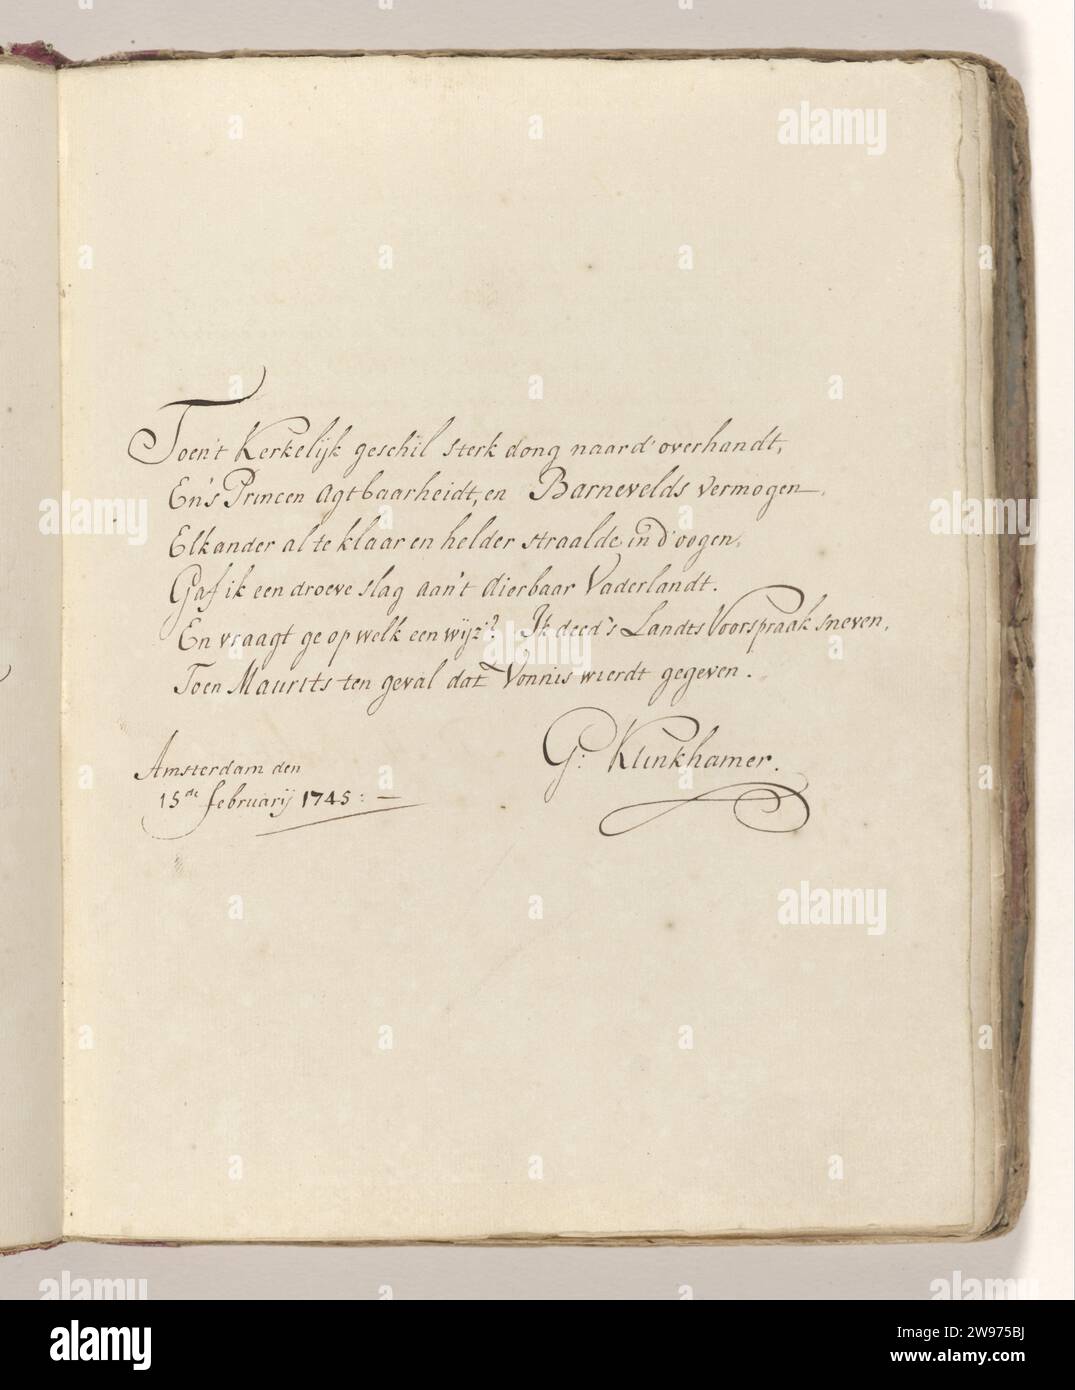 Toen't Kerkelijk geschil sterk dong naar d'overhandt,
En's Princen agtbaarheidt, en Barnevelds vermogen
Elkander al te klaar en helder straalde in d'oogen,
Gaf ik een droeve slag aan't dierbaar Vaderlandt.
En vraagt ge op welk een wyz'? Ik deed's Landts Voorspraak sneven,
Toen Maurits ten geval dat Vonnis wierdt gegeven.
G: Klinkhamer.
Amsterdam den
15de february 1745: —
alamy
a
alamy
Image ID: 2W975BJ
www.alamy.com